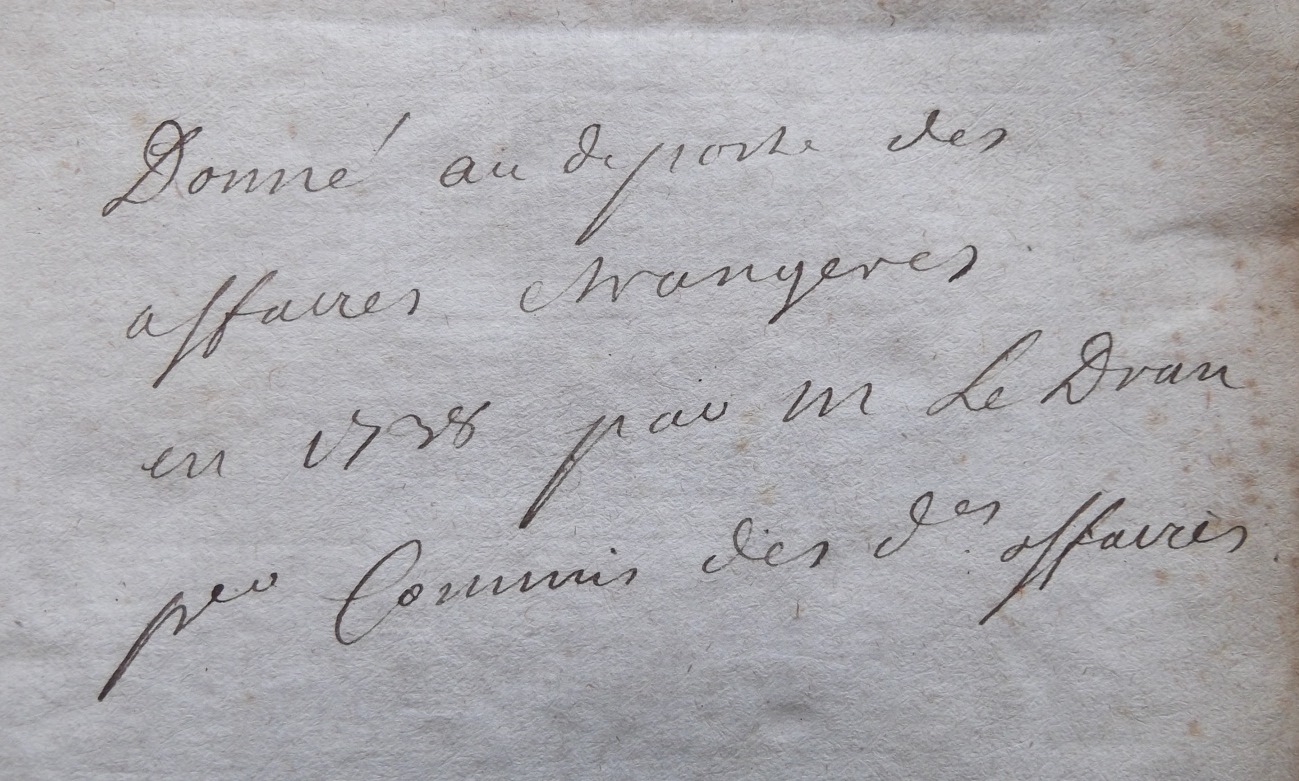 Donné au deposte des
affaires etrangeres
en 1738 par M Le Dran
per Commis des d.es affaires